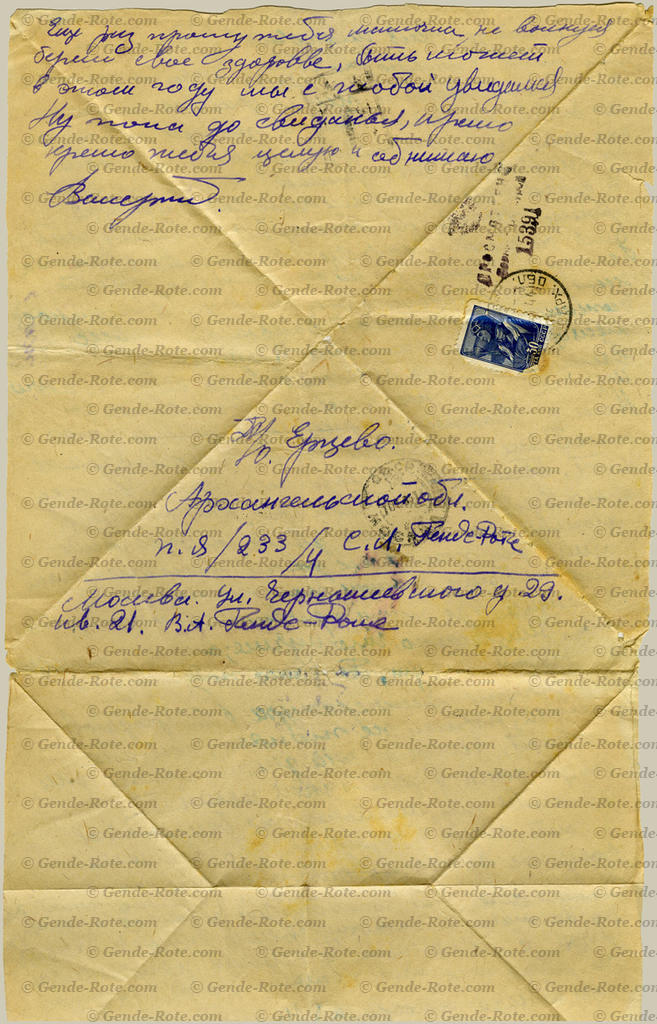 Еще раз прошу тебя мамочка не волнуйся
береги свое здоровье, быть может
в этом году мы с тобой увидимся
Ну пока до свиданья, крепко
крепко тебя целую и обнимаю
Валерий.
ПРОСМОТРЕНО
15391
АРХ. ОБЛ.
30
п/о. Ерцево.
Архангельской обл.
п. я/233/4 С.И. Генде Роте
Москва. ул. Чернышевского д 29.
кв. 21. В.А. Генде-Роте
© Gende-Rote.com